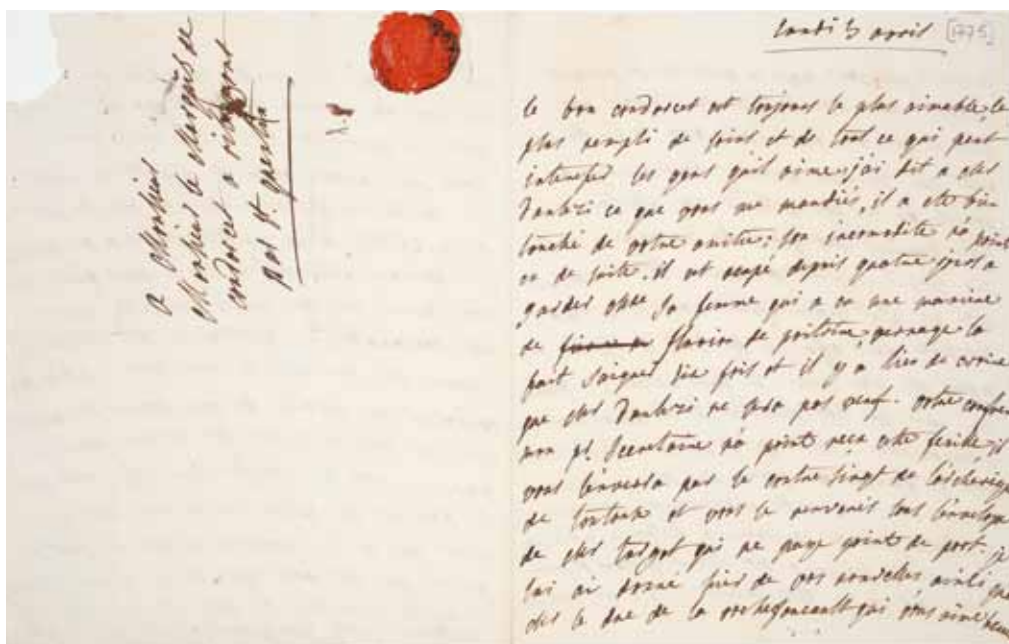 a Monsieur
Monsieur le Marquis de
condorcet a
par St. quentin
lundi 3 avril [1775]
le bon condorcet est toujours le plus aimable, le
plus rempli de soins et de tout ce qui peut
interesser les gens quil aime. j'ai dit a
ce que vous me mandiés, il a ete bien
touché de votre amitie; son incomodite n'a point
eu de suite. il est occupé depuis quatre jours a
garder sa femme qui a eu une maniere
de fluxion de poitrine, la
fait saigner fois et il y a lieu de croire
que ne sera pas veuf. votre confrere
secretaire n'a point reçu cette feuille, il
vous l'enverra par le contre seing de
de et vous le renverrés sous l'envelope
de turgot qui ne paye point de port. je
lui ai donné hier de vos nouvelles ainsi que
le duc de la rochefoucault qui vous aime